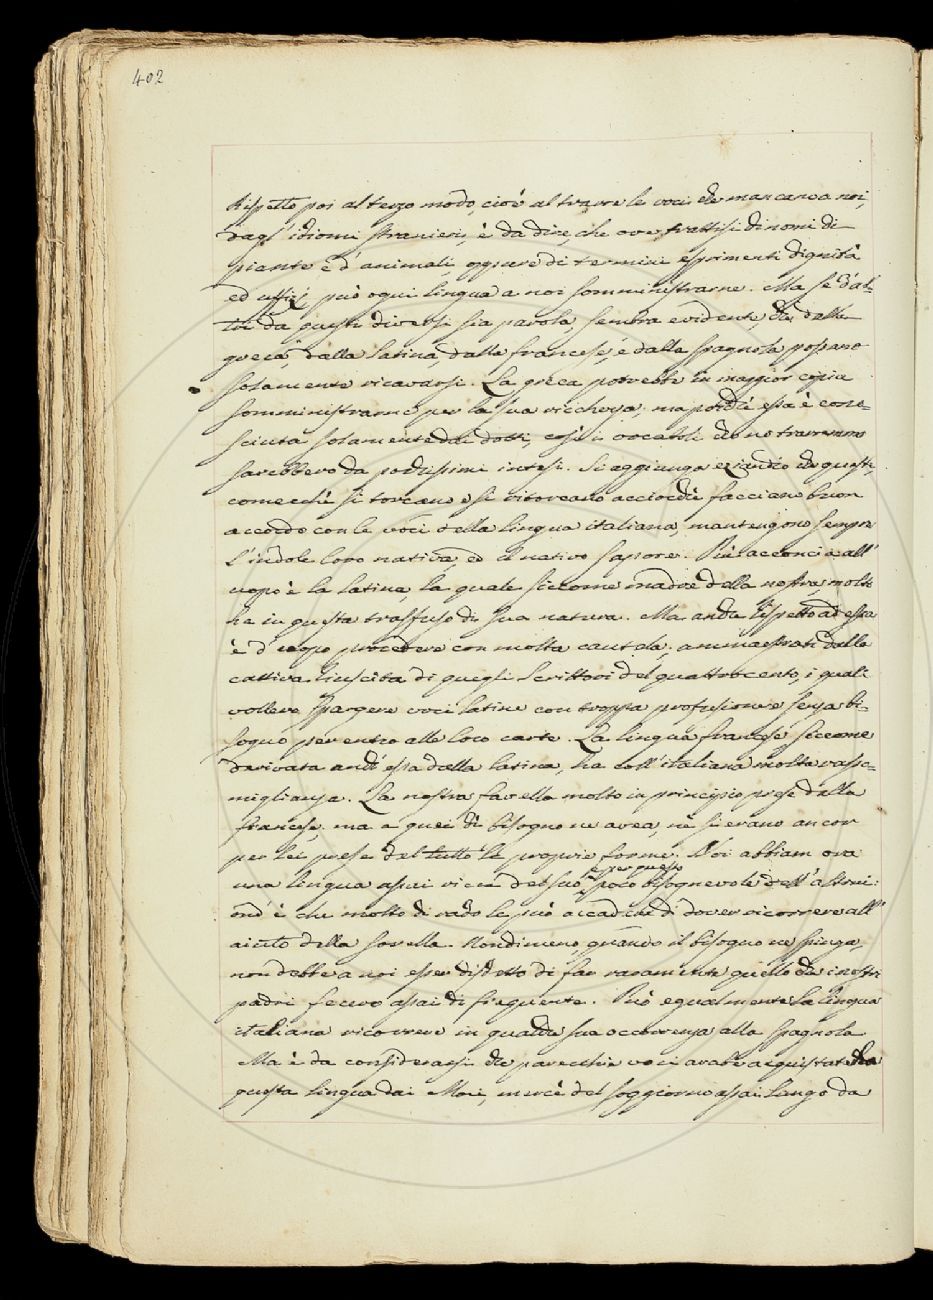 402
Rispetto poi al terzo modo, cioè al trarre le voci che mancano a noi,
dagl' idiomi stranieri, è da dire, che ove trattisi di nomi di
piante e d' animali, oppure di termini esprimenti dignità
ed uffizj, può ogni lingua a noi somministrarne. Ma se d'al-
tro da questi diversi sia parola, sembra evidente, che dalla
greca, dalla latina, dalla francese, e dalla spagnola possano
solamente ricavarsi. La greca potrebbe in maggior copia
somministrarne per la sua ricchezza, ma poichè essa è cono-
sciuta solamente dai dotti, così i vocaboli che ne trarremmo
sarebbero da pochissimi intesi. Si aggiunga eziandio che questi,
comecchè si torcano e si ritorcano acciocchè facciano buon
accordo con le voci della lingua italiana, mantengono sempre
l'indole loro nativa, ed il nativo sapore. Più acconcia all'
uopo è la latina, la quale siccome madre della nostra, molto
ha in questa trasfuso di sua natura. Ma anche rispetto ad essa
è d' uopo procedere con molta cautela, ammaestrati dalla
cattiva riuscita di quegli scrittori del quattrocento, i quali
vollero spargere voci latine con troppa profusione e senza bi-
sogno per entro alle loro carte. La lingua francese siccome
derivata anch' essa dalla latina, ha coll'italiana molta rasso-
miglianza. La nostra favella molto in principio prese dalla
francese, ma a quei dì bisogno ne avea, nè si erano ancor
per lei prese del tutto le proprie forme. Noi abbiam ora
una lingua assai ricca del suo, e per questo poco bisognevole dell' altrui:
ond' è che molto di rado le può accadere di dover ricorrere all'
aiuto della sorella. Nondimeno quando il bisogno ne spinga,
non debbe a noi esser disdetto di far raramente quello che i nostri
padri fecero assai di frequente. Può egualmente la lingua
italiana ricorrere in qualche sua occorrenza alla spagnola
Ma è da considerarsi che parecchie voci arabe acquistate ha
questa lingua dai Mori, mercè del soggiorno assai lungo da